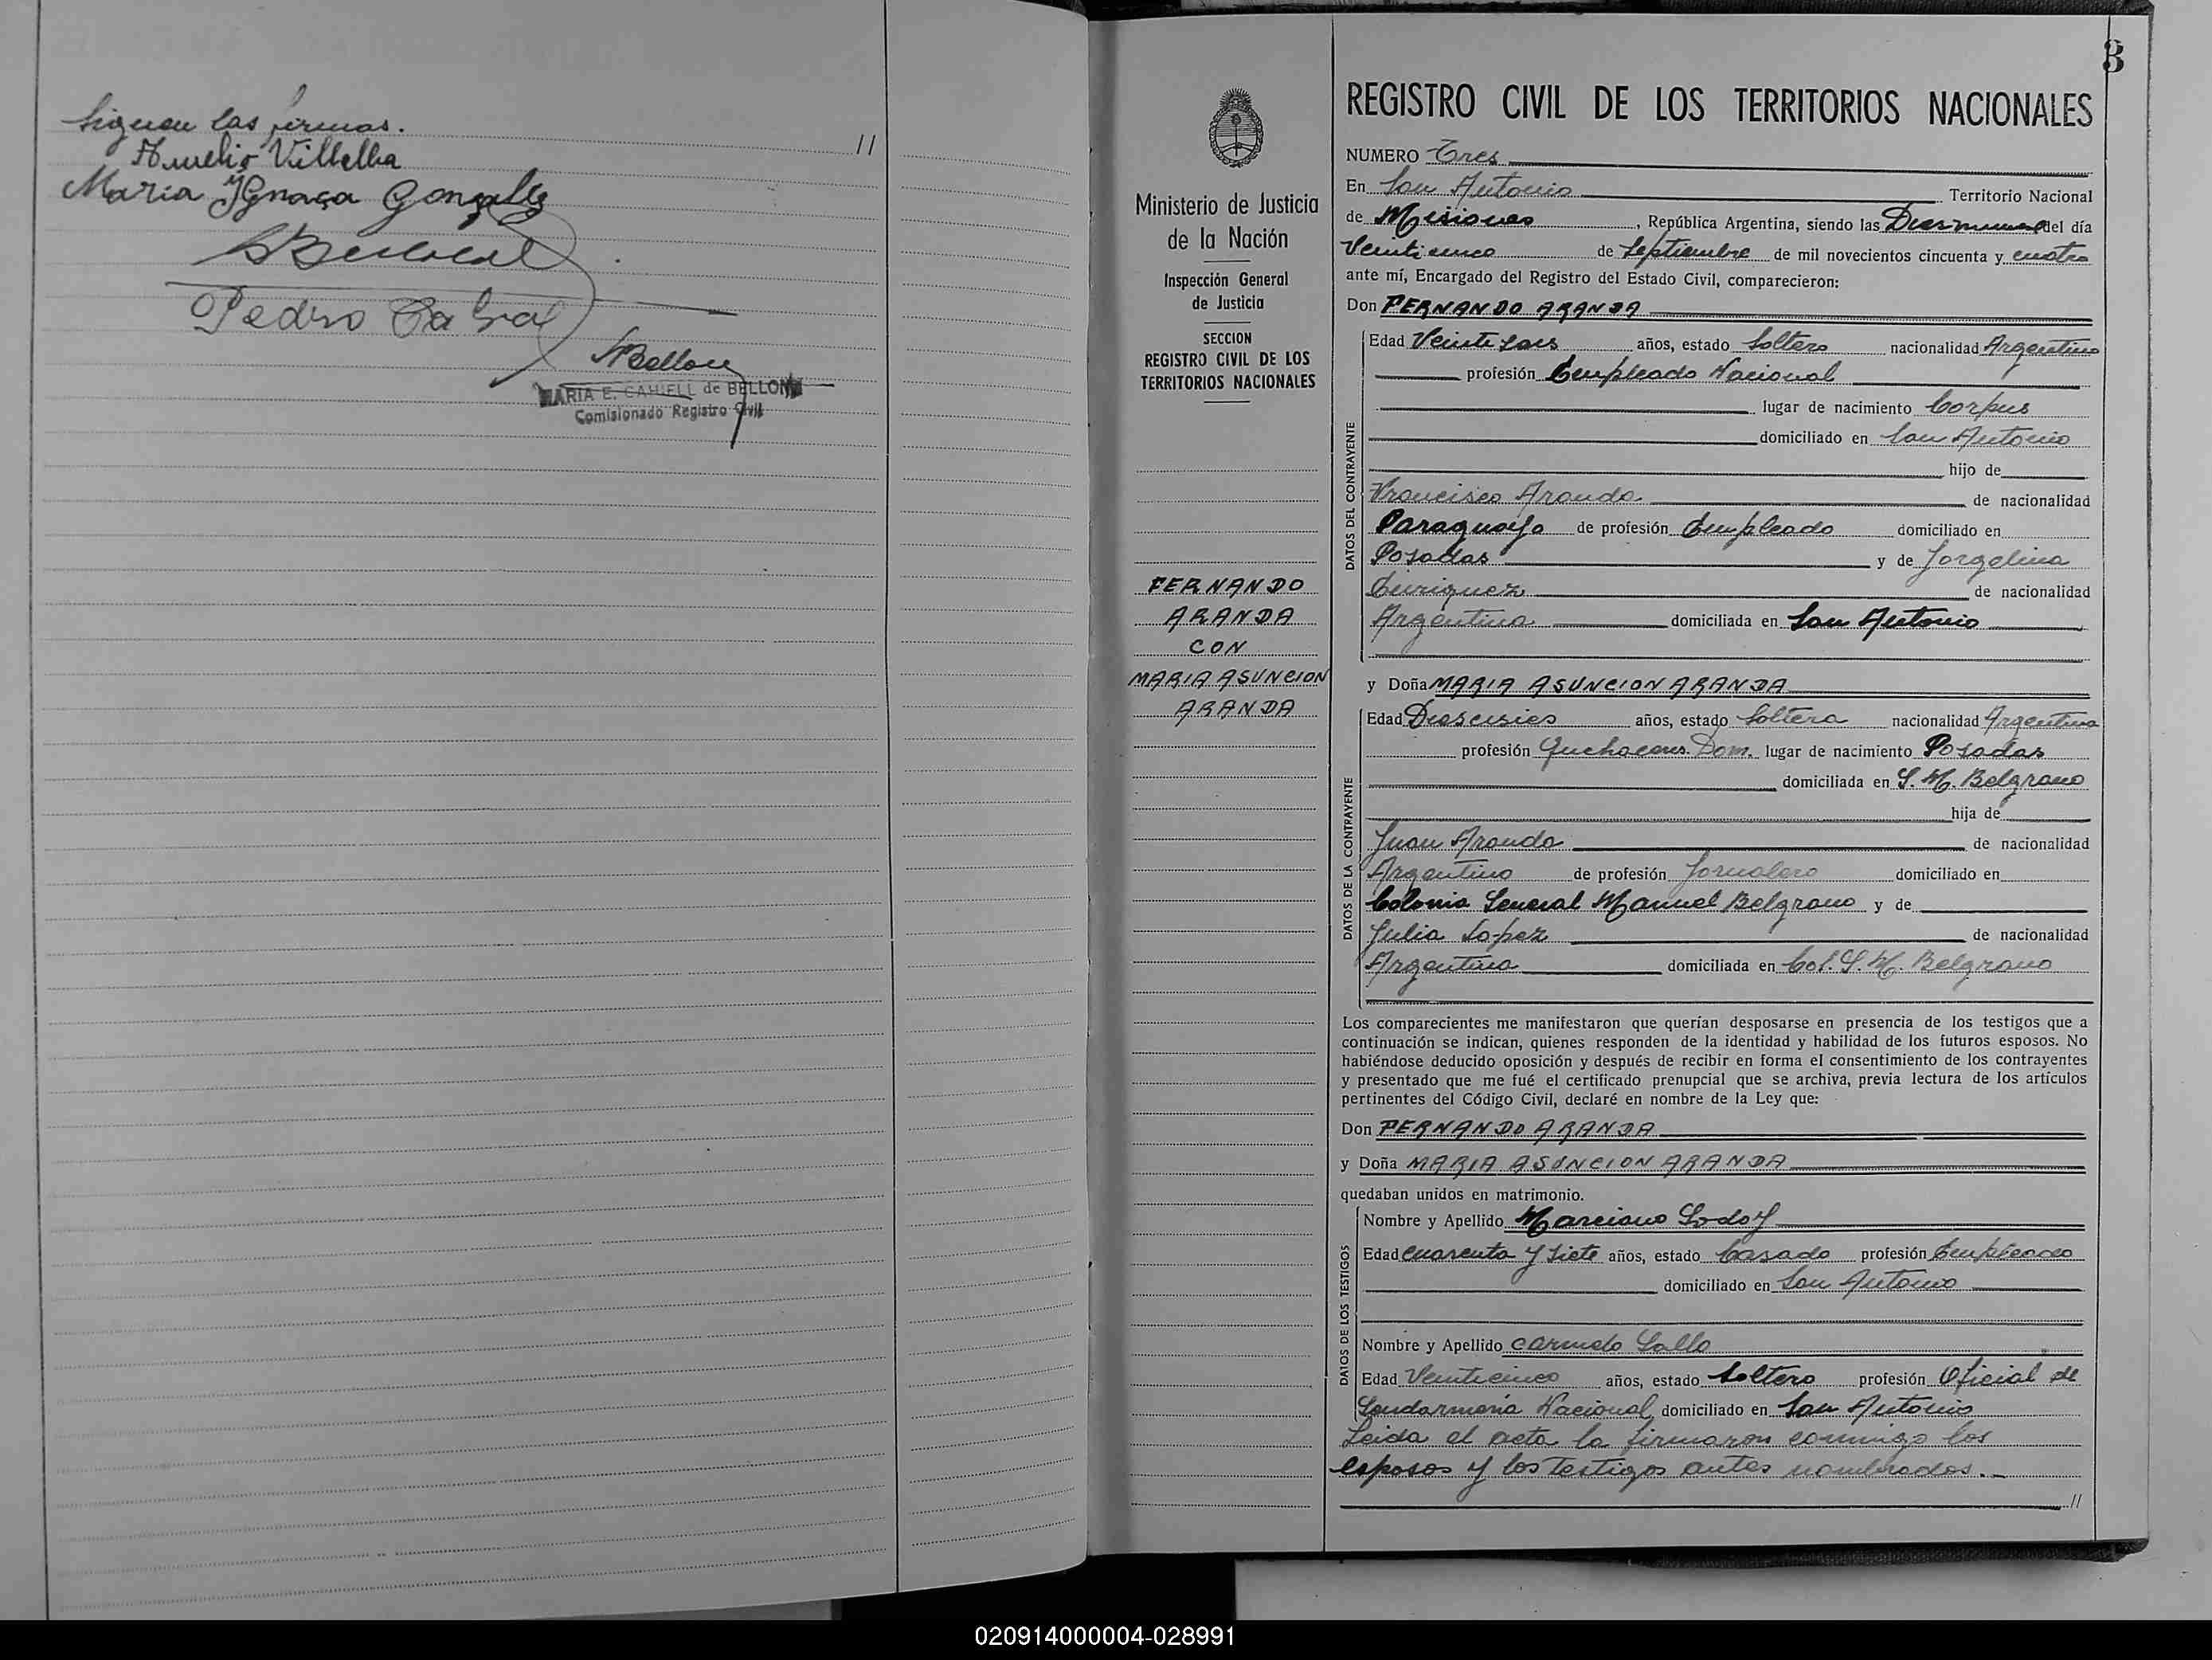 Siguen las firmas.
//
Aurelio Villalba
Maria Ygnaça Gonzalez
Pedro Cabral
NBellony
MARIA E. CAHIELL de BELLONY
Comisionado Registro Civil
3
Ministerio de Justicia
de la Nación
Inspección General
de Justicia
SECCION
REGISTRO CIVIL DE LOS
TERRITORIOS NACIONALES
FERNANDO
ARANDA
CON
MARIA ASUNCION
ARANDA
REGISTRO CIVIL DE LOS TERRITORIOS NACIONALES
NUMERO Tres
En San Antonio Territorio Nacional
de Misiones, República Argentina, siendo las Diez nueve del día
Veinticinco de Septiembre de mil novecientos cincuenta y cuatro
ante mí, Encargado del Registro del Estado Civil, comparecieron:
Don FERNANDO ARANDA
DATOS DEL CONTRAYENTE
Edad Veinte años, estado Soltero nacionalidad Argentino
profesión Empleado Nacional
lugar de nacimiento Corpus
domiciliado en San Antonio
hijo de
Francisco Aranda de nacionalidad
Paraguayo de profesión Empleado domiciliado en
Posadas y de Jorgelina
Enriquez de nacionalidad
Argentina domiciliada en San Antonio
y Doña MARIA ASUNCION ARANDA
DATOS DE LA CONTRAYENTE
Edad Dieseisies años, estado Soltera nacionalidad Argentina
profesión Quehaceres Dom. lugar de nacimiento Posadas
domiciliada en G. M. Belgrano
hija de
Juan Aranda de nacionalidad
Argentino de profesión Jornalero domiciliado en
Colonia General Manuel Belgrano y de
Julia Lopez de nacionalidad
Argentina domiciliada en Col. G. M. Belgrano
Los comparecientes me manifestaron que querían desposarse en presencia de los testigos que a
continuación se indican, quienes responden de la identidad y habilidad de los futuros esposos. No
habiéndose deducido oposición y después de recibir en forma el consentimiento de los contrayentes
y presentado que me fué el certificado prenupcial que se archiva, previa lectura de los artículos
pertinentes del Código Civil, declaré en nombre de la Ley que:
Don FERNANDO ARANDA
y Doña MARIA ASUNCION ARANDA
quedaban unidos en matrimonio.
DATOS DE LOS TESTIGOS
Nombre y Apellido Marciano Godoy
Edad Cuarenta y siete años, estado Casado profesión Empleado
domiciliado en San Antonio
Nombre y Apellido Carmelo Gallo
Edad Veinticinco años, estado Soltero profesión Oficial de
Gendarmeria Nacional domiciliado en San Antonio
Leida el acta la firmaron conmigo los
esposos y los testigos antes nombrados.
//
020914000004-028991